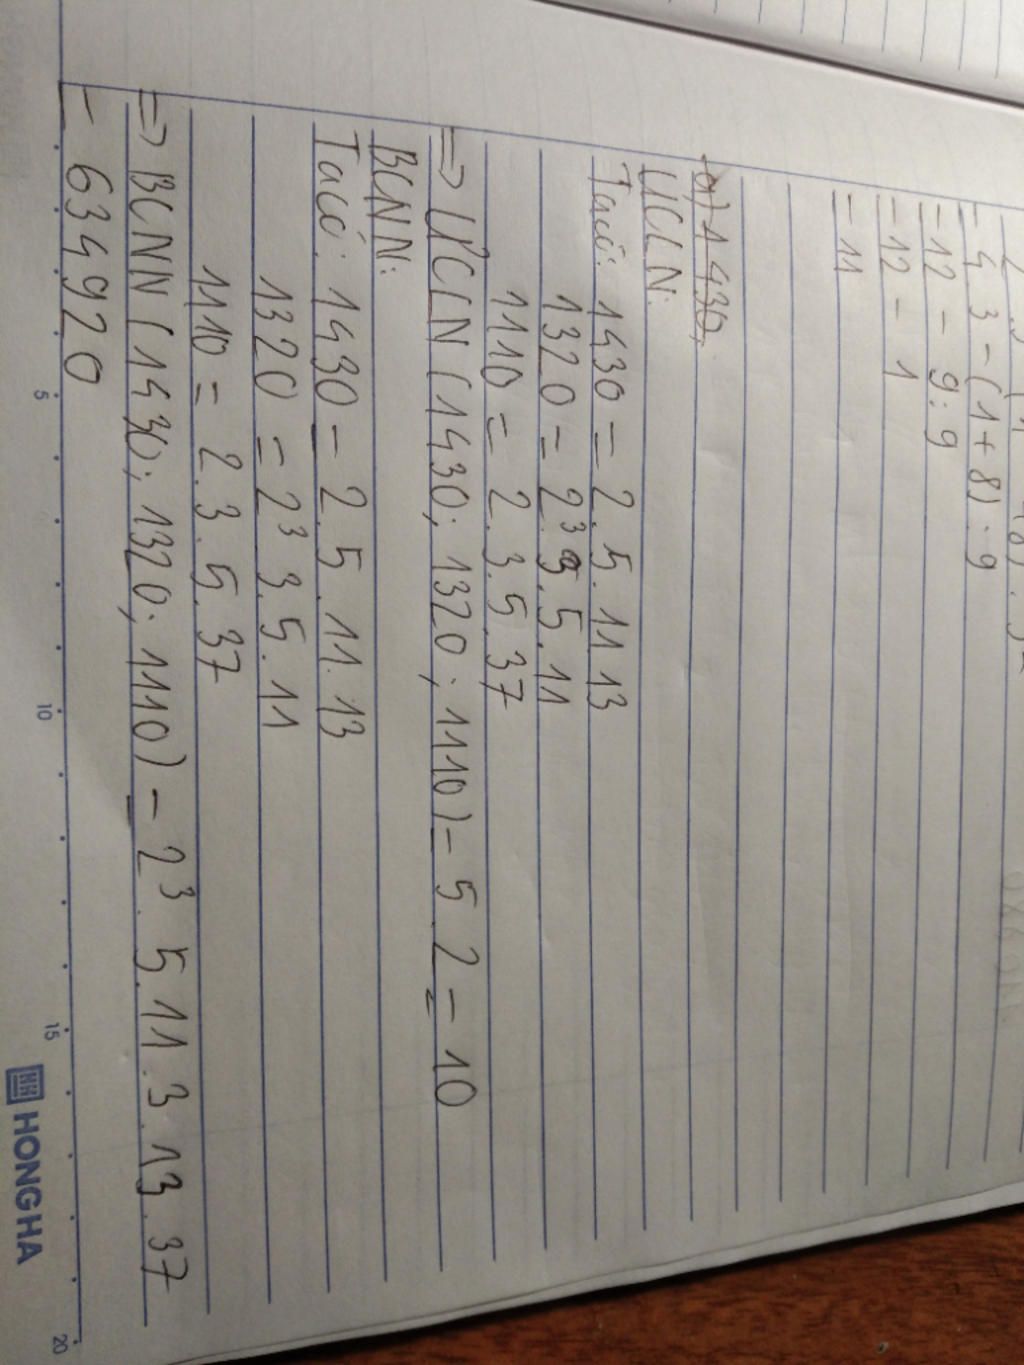 = 4.3 - (1+8):9
= 12 - 9:9
= 12 - 1
= 11
a) 1430,
ƯCLN:
Ta có: 1430 = 2.5.11.13
1320 = 2³.3.5.11
1110 = 2.3.5.37
=> ƯCLN (1430; 1320; 1110) = 5.2 = 10
BCNN:
Ta có: 1430 = 2.5.11.13
1320 = 2³.3.5.11
1110 = 2.3.5.37
=> BCNN (1430; 1320; 1110) = 2³.5.11.3.13.37
= 634920
5 10 15 20
HONG HA